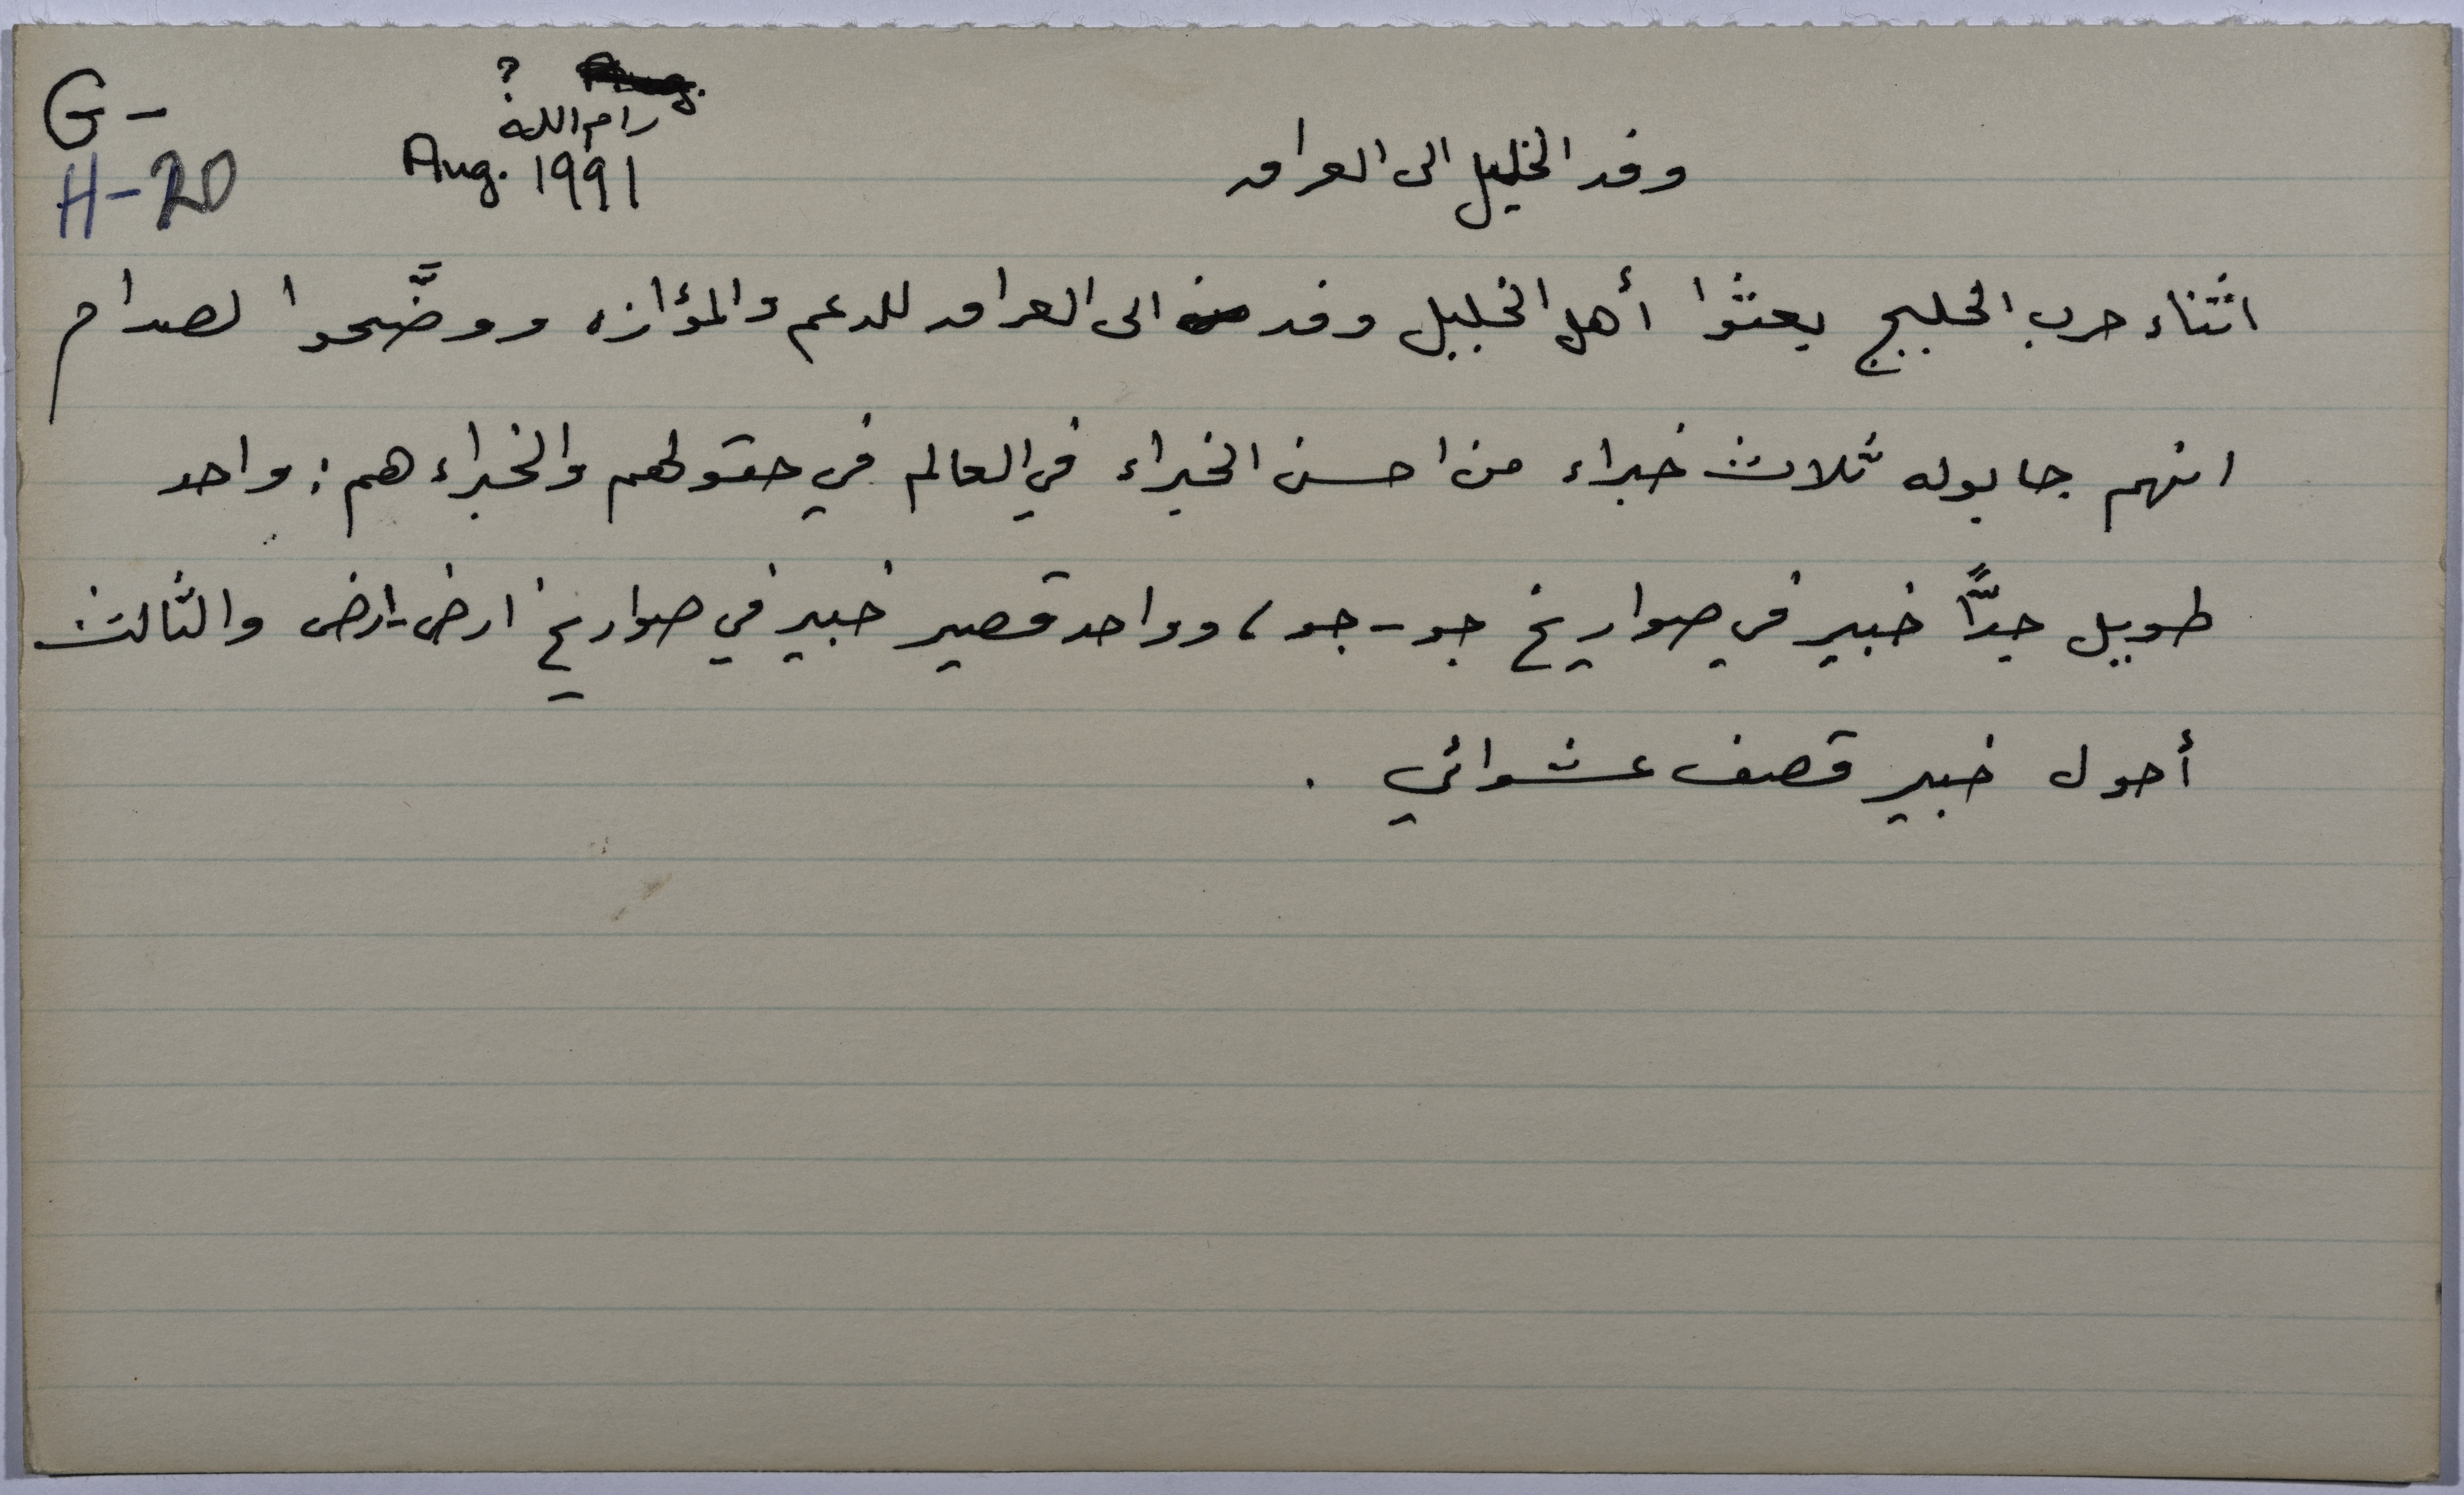 G-
H-20
?
رام الله
Aug. 1991
وفد الخليل الى العراق
اثناء حرب الخليج بعثوا أهل الخليل وفد الى العراق للدعم والمؤازه ووضَّحوا لصدام
انهم جابوله ثلاث خبراء من احسن الخبراء في العالم في حقولهم والخبراء هم: واحد
طويل جدًّا خبير في صواريخ جو-جو، وواحد قصير خبير في صواريخ ارض-ارض والثالث
أحول خبير قصف عشوائي.